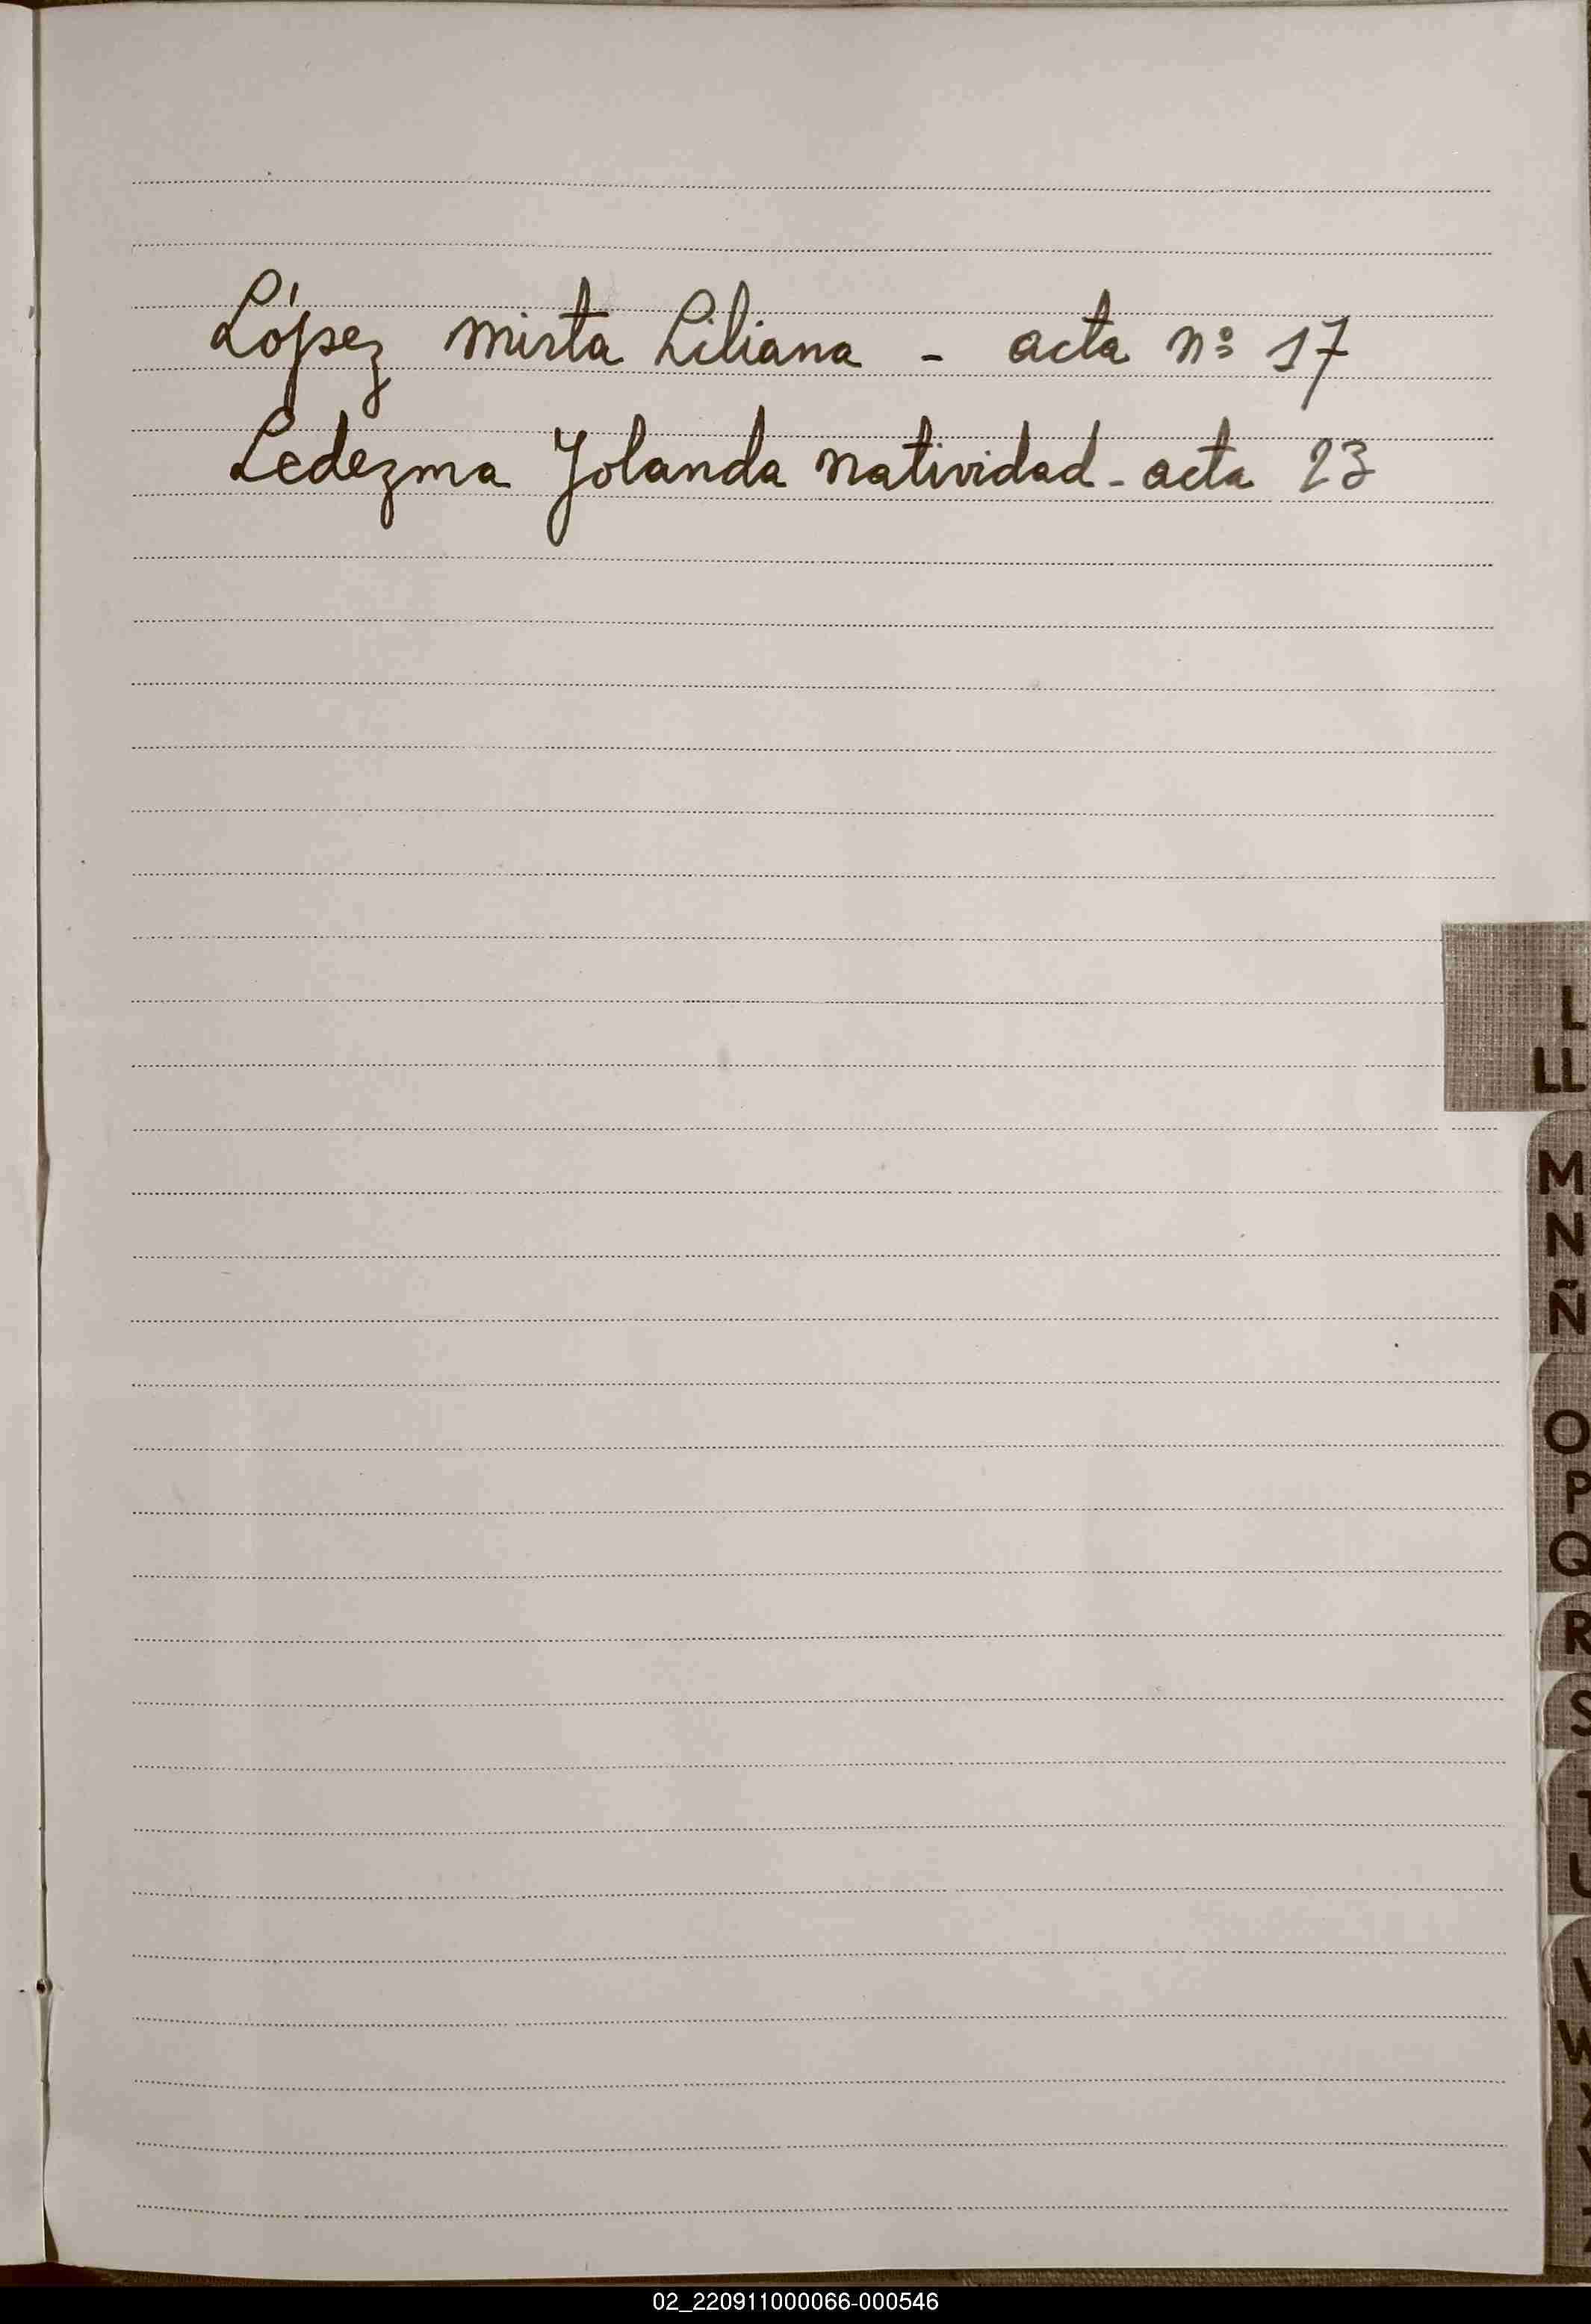 López Mirta Liliana - acta nº 17
Ledezma Yolanda Natividad - acta 23
L
LL
M
N
Ñ
O
P
Q
R
S
T
U
V
W
X
Y
02_220911000066-000546